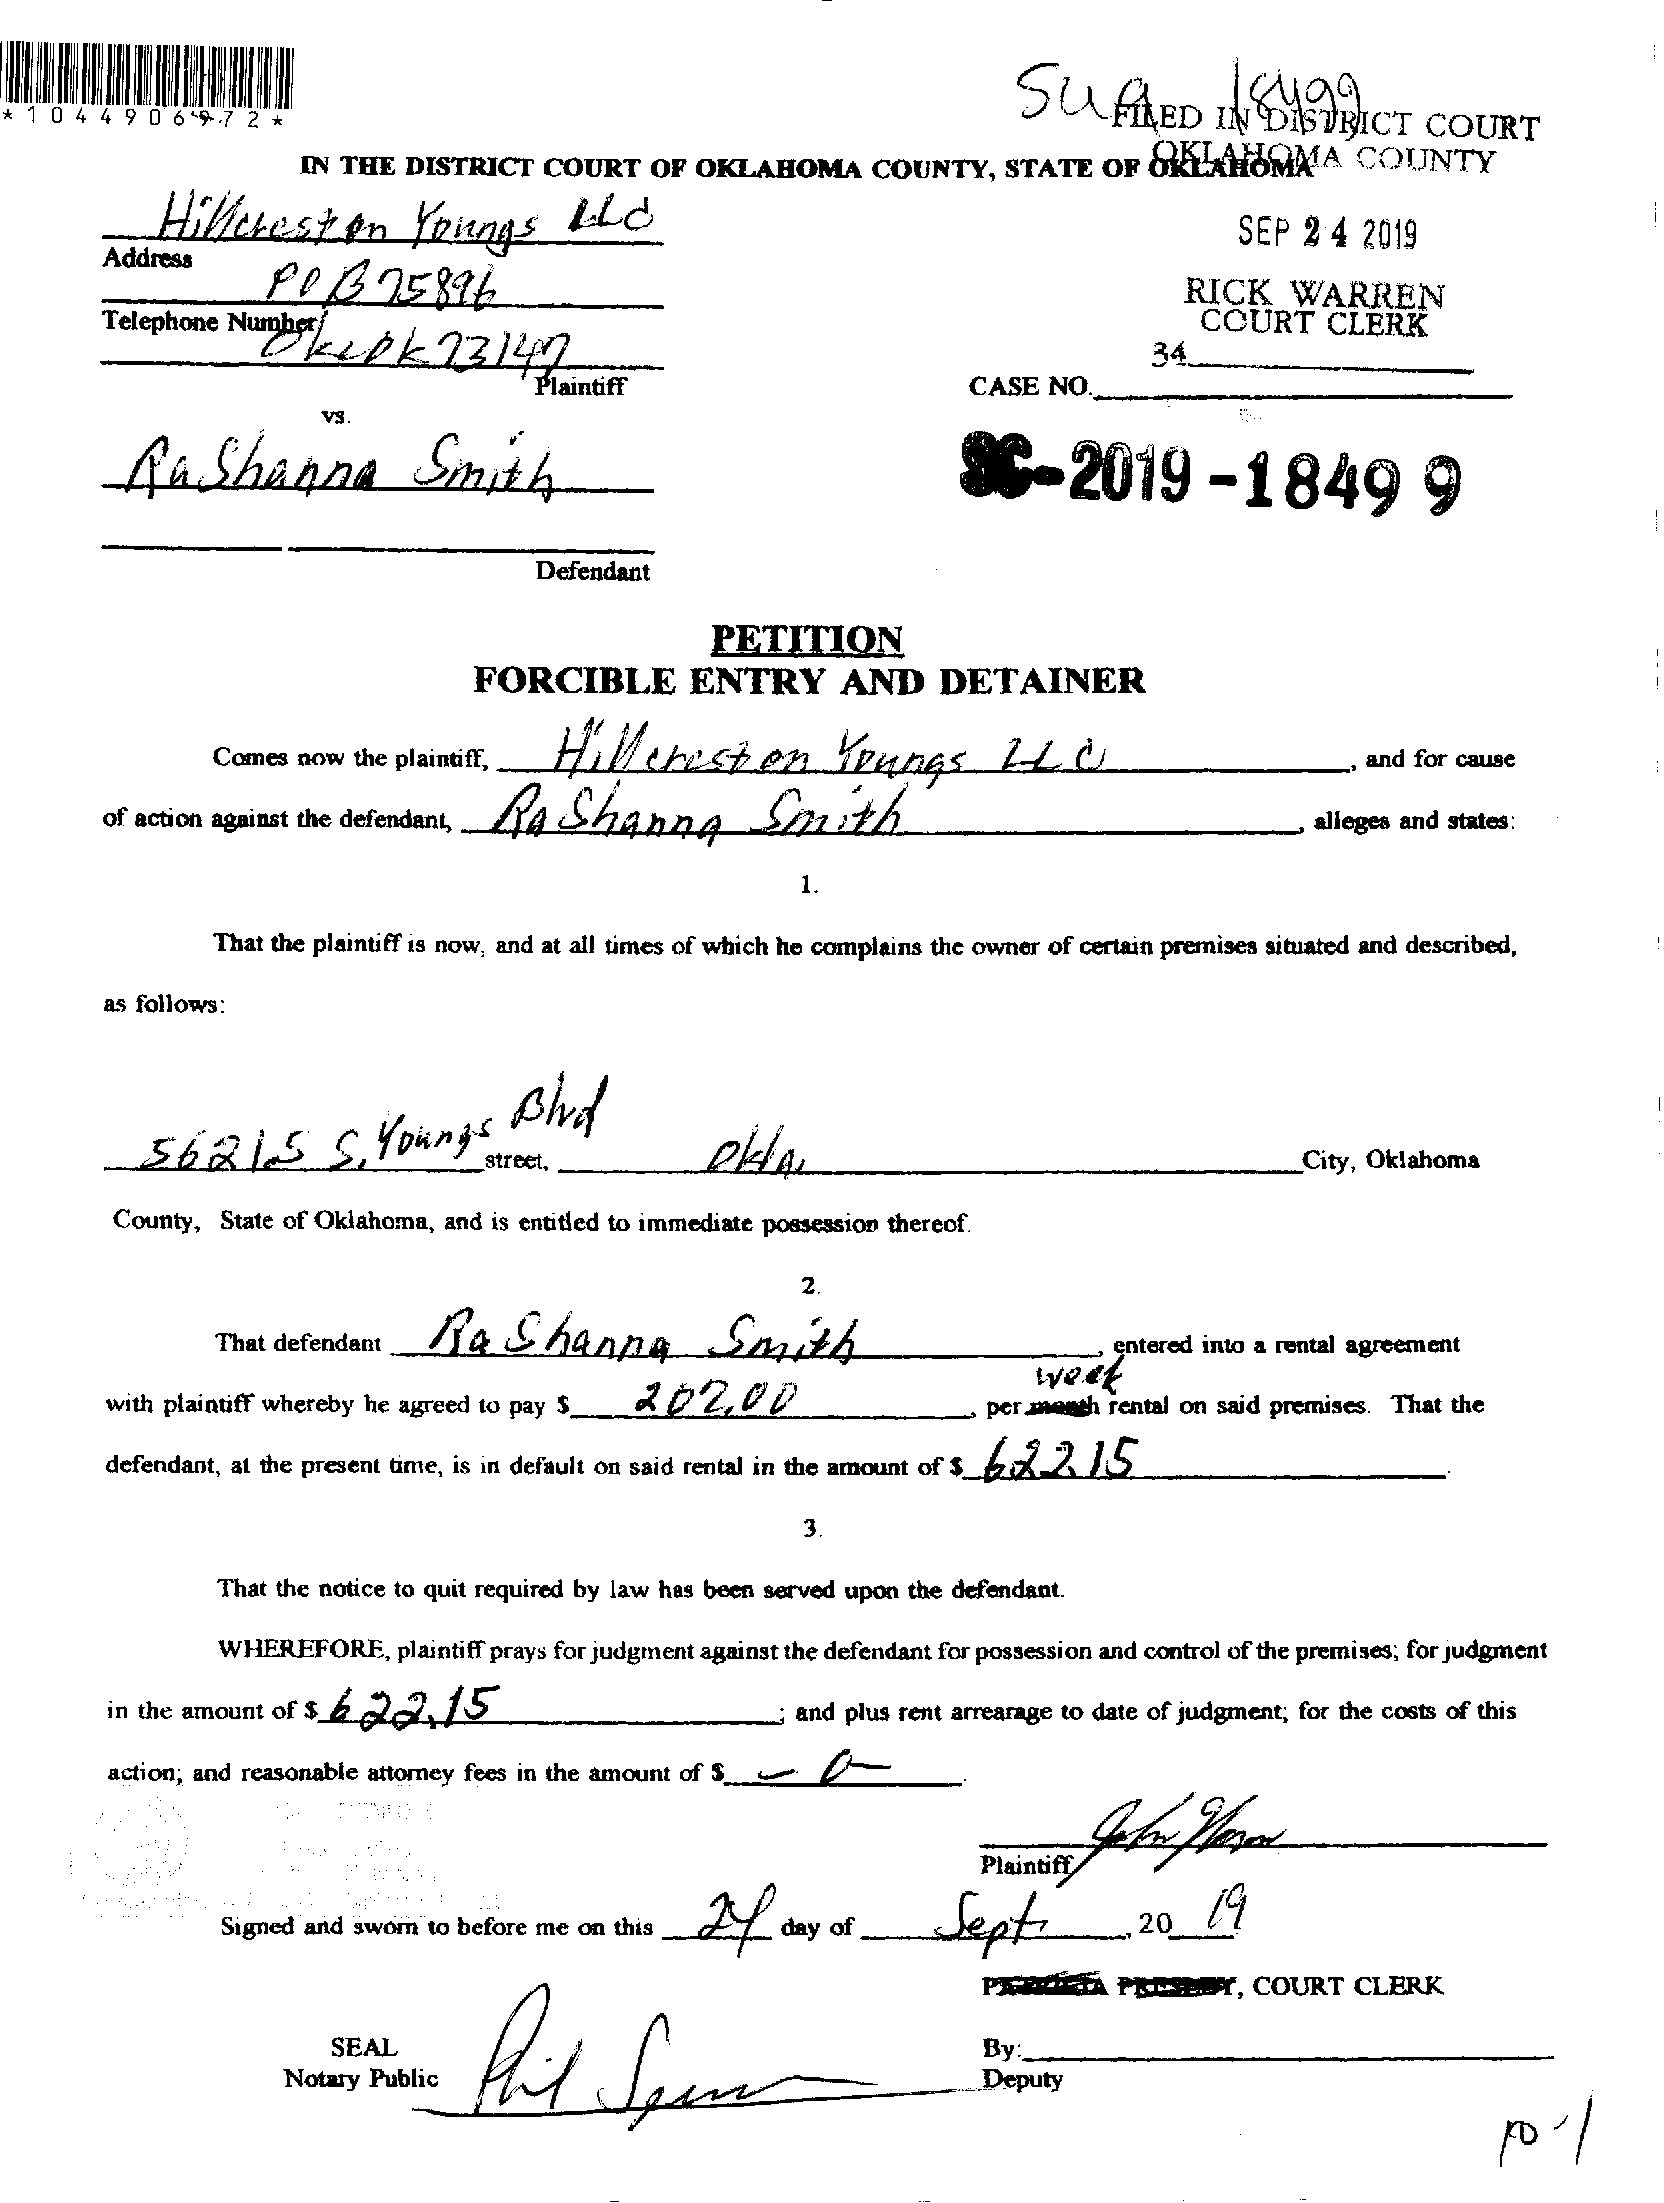 *1044906972*
FILED IN DISTRICT COURT
OKLAHOMA COUNTY
IN THE DISTRICT COURT OF OKLAHOMA COUNTY, STATE OF OKLAHOMA
Hillcrest on Youngs LLC
SEP 24 2019
Address
POB 75896
RICK WARREN
COURT CLERK
Telephone Number
OKC OK 73147
34
Plaintiff
CASE NO.
vs.
RaShanna Smith
SC-2019-18499
Defendant
PETITION
FORCIBLE ENTRY AND DETAINER
Comes now the plaintiff, Hillcrest on Youngs LLC, and for cause
of action against the defendant, RaShanna Smith, alleges and states:
1.
That the plaintiff is now, and at all times of which he complains the owner of certain premises situated and described,
as follows:
5621S S. Youngs Blvd street, Okla. City, Oklahoma
County, State of Oklahoma, and is entitled to immediate possession thereof.
2.
That defendant RaShanna Smith, entered into a rental agreement
week
with plaintiff whereby he agreed to pay $ 202.00, per month rental on said premises. That the
defendant, at the present time, is in default on said rental in the amount of $ 622.15
3.
That the notice to quit required by law has been served upon the defendant.
WHEREFORE, plaintiff prays for judgment against the defendant for possession and control of the premises; for judgment
in the amount of $ 622.15; and plus rent arrearage to date of judgment; for the costs of this
action; and reasonable attorney fees in the amount of $ -0-.
John
Plaintiff
Signed and sworn to before me on this 24 day of Sept, 20 19
, COURT CLERK
SEAL
By:
Notary Public Phil
Deputy